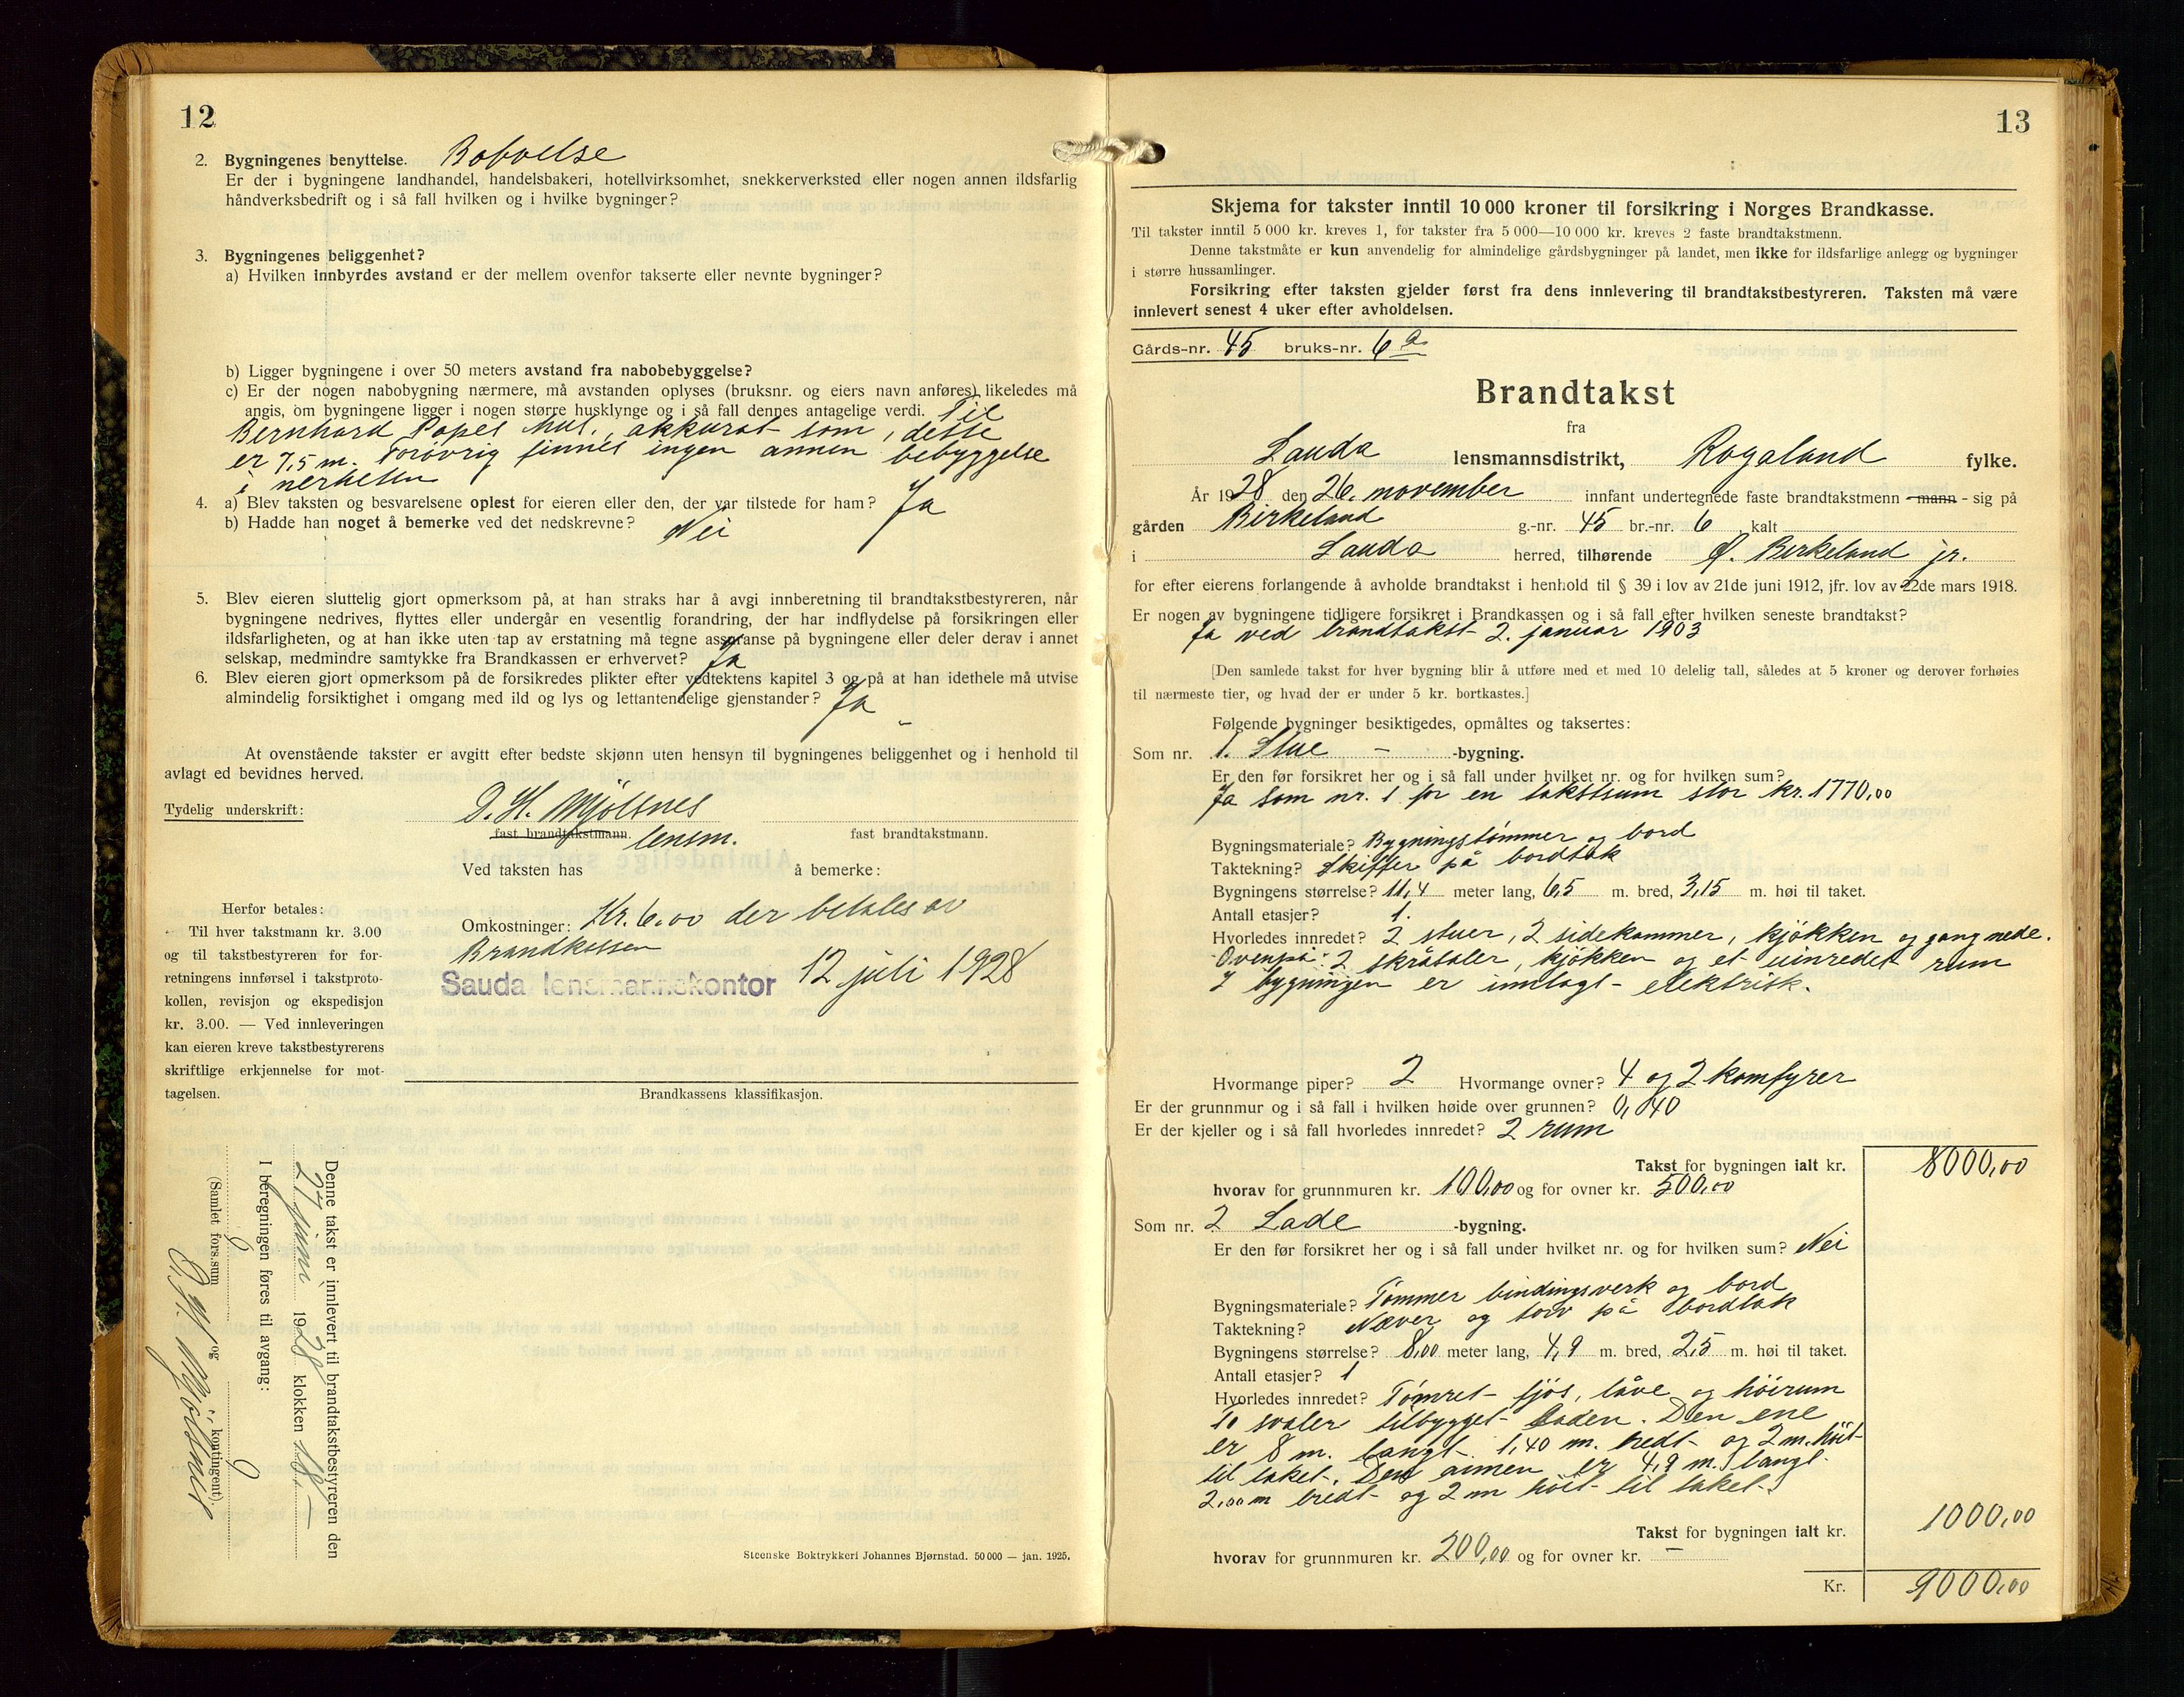 12
2. Bygningenes benyttelse. Beboelse
Er der i bygningene landhandel, handelsbakeri, hotellvirksomhet, snekkerverksted eller nogen annen ildsfarlig
håndverksbedrift og i så fall hvilken og i hvilke bygninger?
3. Bygningenes beliggenhet?
a) Hvilken innbyrdes avstand er der mellem ovenfor takserte eller nevnte bygninger?
b) Ligger bygningene i over 50 meters avstand fra nabobebyggelse?
c) Er der nogen nabobygning nærmere, må avstanden oplyses (bruksnr. og eiers navn anføres) likeledes må
angis, om bygningene ligger i nogen større husklynge og i så fall dennes antagelige verdi. Til
Bernhard Papes hus, akkurat som dette
er 7,5 m. Forøvrig finnes ingen annen bebyggelse
i nerheten
4. a) Blev taksten og besvarelsene oplest for eieren eller den, der var tilstede for ham? Ja
b) Hadde han noget å bemerke ved det nedskrevne? Nei
5. Blev eieren sluttelig gjort opmerksom på, at han straks har å avgi innberetning til brandtakstbestyreren, når
bygningene nedrives, flyttes eller undergår en vesentlig forandring, der har indflydelse på forsikringen eller
ildsfarligheten, og at han ikke uten tap av erstatning må tegne assuranse på bygningene eller deler derav i annet
selskap, medmindre samtykke fra Brandkassen er erhvervet? Ja
6. Blev eieren gjort opmerksom på de forsikredes plikter efter vedtektens kapitel 3 og på at han idethele må utvise
almindelig forsiktighet i omgang med ild og lys og lettantendelige gjenstander? Ja
At ovenstående takster er avgitt efter bedste skjønn uten hensyn til bygningenes beliggenhet og i henhold til
avlagt ed bevidnes herved.
Tydelig underskrift: D. H. Mjølsnes
fast brandtakstmann. lensm. fast brandtakstmann.
Ved taksten has å bemerke:
Omkostninger: Kr. 6.00 der betales av
Brandkassen
Sauda lensmannskontor 12 juli 1928
Herfor betales:
Til hver takstmann kr. 3.00
og til takstbestyreren for for-
retningens innførsel i takstproto-
kollen, revisjon og ekspedisjon
kr. 3.00. — Ved innleveringen
kan eieren kreve takstbestyrerens
skriftlige erkjennelse for mot-
tagelsen.
Brandkassens klassifikasjon.
Denne takst er innlevert til brandtakstbestyreren den
27 juni 1928 klokken 18.—
I beregningen føres til avgang:
(Samlet fors.sum og kontingent).
D. H. Mjölsnes
Steenske Boktrykkeri Johannes Bjørnstad. 50 000 — jan. 1925.
13
Skjema for takster inntil 10 000 kroner til forsikring i Norges Brandkasse.
Til takster inntil 5 000 kr. kreves 1, for takster fra 5 000—10 000 kr. kreves 2 faste brandtakstmenn.
Denne takstmåte er kun anvendelig for almindelige gårdsbygninger på landet, men ikke for ildsfarlige anlegg og bygninger
i større hussamlinger.
Forsikring efter taksten gjelder først fra dens innlevering til brandtakstbestyreren. Taksten må være
innlevert senest 4 uker efter avholdelsen.
Gårds-nr. 45 bruks-nr. 6 a
Brandtakst
fra
Sauda lensmannsdistrikt, Rogaland fylke.
År 1928 den 26. november innfant undertegnede faste brandtakstmenn mann - sig på
gården Birkeland g.-nr. 45 br.-nr. 6 kalt
i Sauda herred, tilhørende Ø. Birkeland jr.
for efter eierens forlangende å avholde brandtakst i henhold til § 39 i lov av 21de juni 1912, jfr. lov av 22de mars 1918.
Er nogen av bygningene tidligere forsikret i Brandkassen og i så fall efter hvilken seneste brandtakst?
Ja ved brandtakst 2. januar 1903
[Den samlede takst for hver bygning blir å utføre med et med 10 delelig tall, således at 5 kroner og derover forhøies
til nærmeste tier, og hvad der er under 5 kr. bortkastes.]
Følgende bygninger besiktigedes, opmåltes og taksertes:
Som nr. 1. Stue - -bygning.
Er den før forsikret her og i så fall under hvilket nr. og for hvilken sum?
Ja som nr. 1 for en takstsum stor kr. 1770,00
Bygningsmateriale? Bygningstømmer og bord
Taktekning? Skiffer på bordtak
Bygningens størrelse? 11,4 meter lang, 6,5 m. bred, 3,15 m. høi til taket.
Antall etasjer? 1.
Hvorledes innredet? 2 stuer, 2 sidekammer, kjøkken og gang nede.
Ovenpå: 2 skråtaler, kjøkken og et uinredet rum
I bygningen er innlagt elektrisk.
Hvormange piper? 2 Hvormange ovner? 4 og 2 komfyrer
Er der grunnmur og i så fall i hvilken høide over grunnen? 0,40
Er der kjeller og i så fall hvorledes innredet? 2 rum
Takst for bygningen ialt kr. 8000,00
hvorav for grunnmuren kr. 100,00 og for ovner kr. 500,00
Som nr. 2 Lade -bygning.
Er den før forsikret her og i så fall under hvilket nr. og for hvilken sum? Nei
Bygningsmateriale? Tømmer bindingsverk og bord
Taktekning? Næver og torv på bordtak
Bygningens størrelse? 8,00 meter lang, 4,9 m. bred, 2,5 m. høi til taket.
Antall etasjer? 1
Hvorledes innredet? Tømret fjøs, låve og höirum
To svaler tilbygget laden. Den ene
er 8 m. langt 1,40 m. bredt og 2 m. høit
til taket. Den annen er 4,9 m. langt
2,00 m bredt og 2 m høit til taket.
Takst for bygningen ialt kr. 1000,00
hvorav for grunnmuren kr. 200,00 og for ovner kr. —
Kr. 9000,00